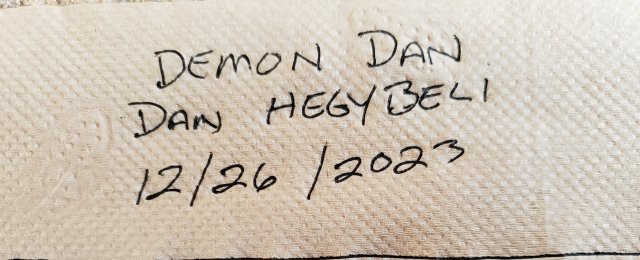 DEMON DAN
DAN HEGYBELI
12/26/2023